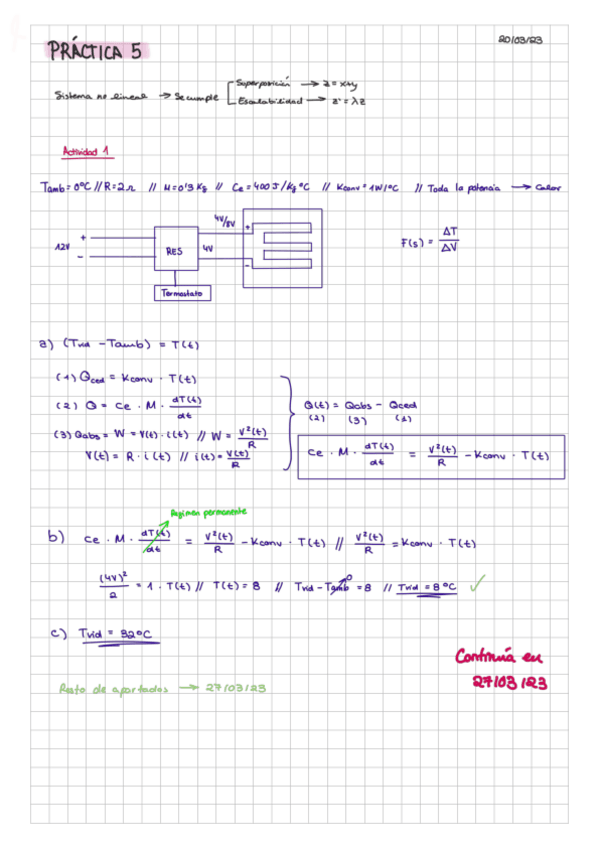 20/03/23
PRÁCTICA 5
Sistema no lineal → Se cumple
Superposición → z = x+y
Escalabilidad → z' = λz
Actividad 1
Tamb = 0ºC // R = 2Ω // M = 0'3 Kg // Ce = 400 J/Kg ºC // Kconv = 1W/ºC // Toda la potencia → Calor
12V + - RES 4V/8V 4V + -
F(s) = ΔT/ΔV
Termostato
a) (Tvid - Tamb) = T(t)
(1) Qced = Kconv · T(t)
(2) Q = Ce · M · dT(t)/dt
(3) Qabs = W = V(t) · i(t) // W = V²(t)/R
V(t) = R · i(t) // i(t) = V(t)/R
Q(t) = Qabs - Qced
(2) (3) (1)
Ce · M · dT(t)/dt = V²(t)/R - Kconv · T(t)
Regimen permanente
b) Ce · M · dT(t)/dt = V²(t)/R - Kconv · T(t) // V²(t)/R = Kconv · T(t)
(4V)²/2 = 1 · T(t) // T(t) = 8 // Tvid - Tamb = 8 // Tvid = 8ºC ✓
0
c) Tvid = 32ºC
Continúa en
27/03/23
Resto de apartados → 27/03/23